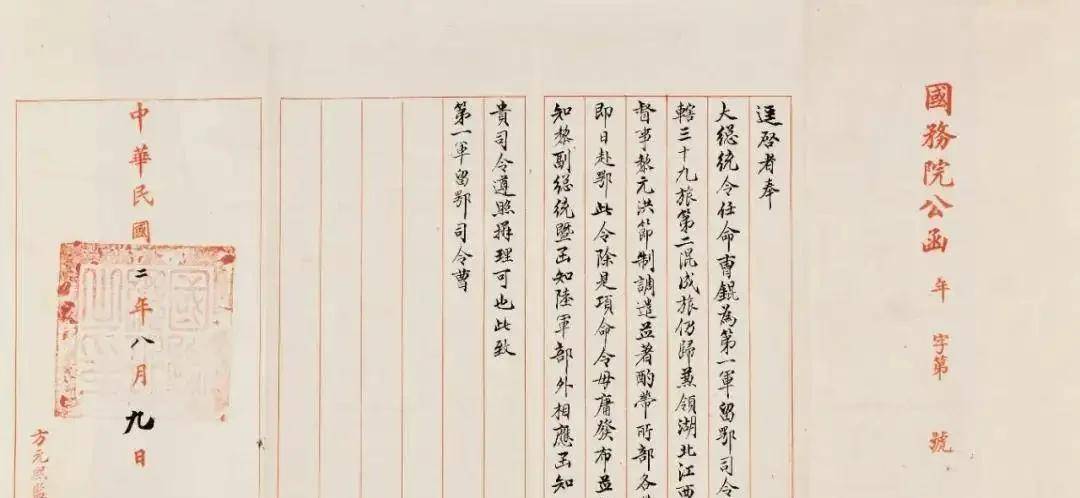 國務院公函 年 字第 號
逕啓者奉
大總統令任命曹錕為第一軍留鄂司令
轄三十九旅第二混成旅仍歸兼領湖北江西
督事黎元洪節制調遣並著酌帶所部各
即日赴鄂此令除是項命令毋庸發布並
知黎副總統暨函知陸軍部外相應函知
貴司令遵照辦理可也此致
第一軍留鄂司令曹
中華民國二年八月九日
方元熙監